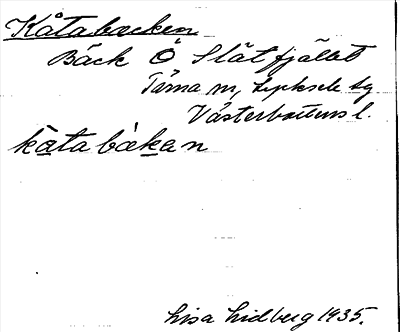 Kåtabacken
Bäck Ö Slätfjället
Tärna sn, Lycksele tg
Västerbottens l.
kåtabàkan
Lisa Lidberg 1935.